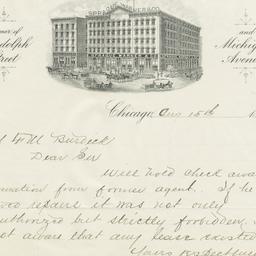 rner of
ndolph
treet
SPRAGUE, WARNER & CO.
and
Michig
Avenu
Chicago, Aug 15th
F M Burdeck
Dear Sir
Will hold check awai
mation from former agent. If he
repairs it was not only
uthorized but strictly forbidden.
ot aware that any lease existed
Yours respectfully